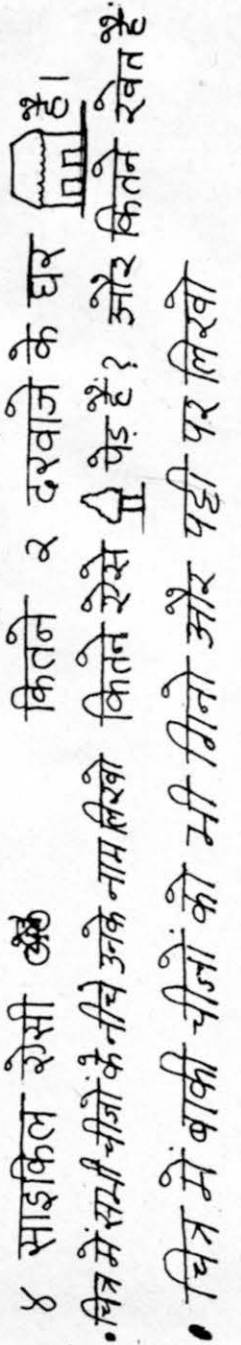 ४ साइकिल ऐसी कितने २ दरवाजे के घर है।
• चित्र में सभी चीजों के नीचे उनके नाम लिखो कितने ऐसे पेड़ है? और कितने खेत है.
• चित्र में बाकी चीजों को भी गिनो और पट्टी पर लिखो